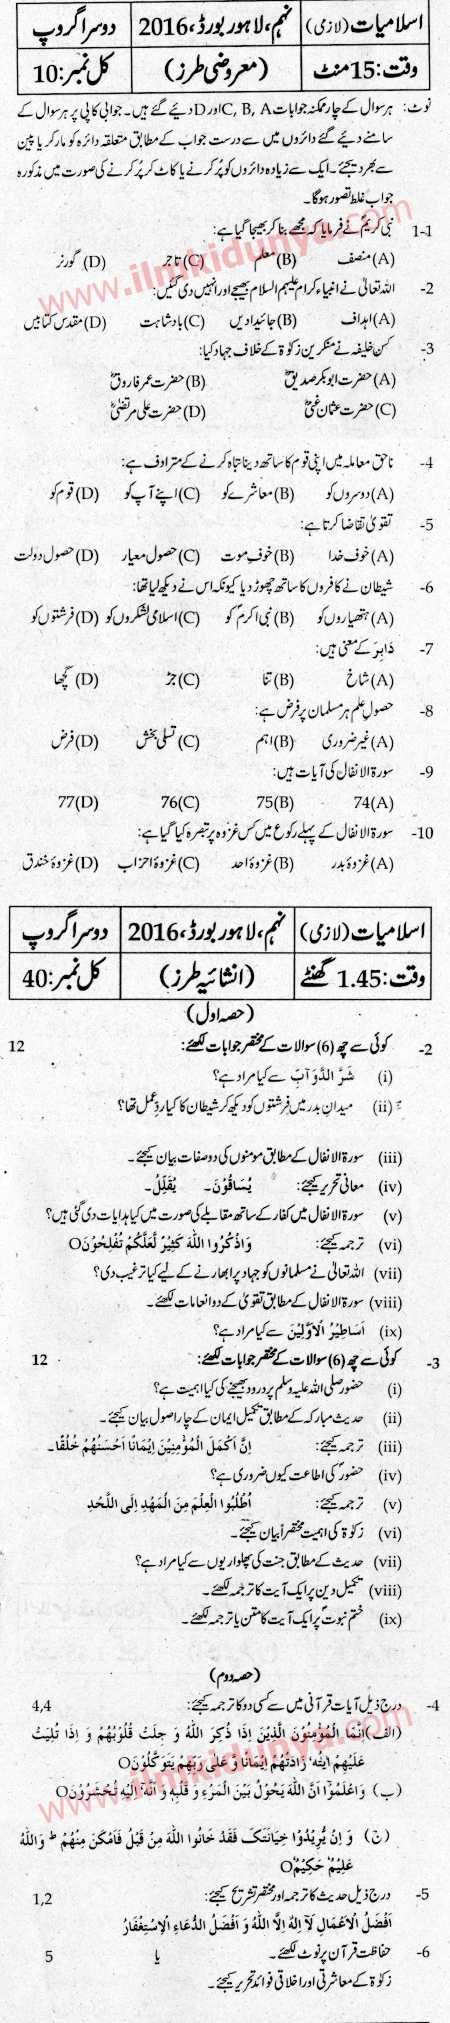 اسلامیات (لازمی) نہم، لاہور بورڈ، 2016 دوسرا گروپ
وقت: 15 منٹ (معروضی طرز) کل نمبر: 10
نوٹ: ہر سوال کے چار ممکنہ جوابات C, B, A اور D دیئے گئے ہیں۔ جوابی کاپی پر ہر سوال کے
سامنے دیئے گئے دائروں میں سے درست جواب کے مطابق متعلقہ دائرہ کو مارکر یا پین
سے بھر دیجئے۔ ایک سے زیادہ دائروں کو پُر کرنے یا کاٹ کر پُر کرنے کی صورت میں مذکورہ
جواب غلط تصور ہوگا۔
1-1 نبی کریمؐ نے فرمایا کہ مجھے بنا کر بھیجا گیا ہے:
(A) منصف (B) معلم (C) تاجر (D) گورنر
2- اللہ تعالیٰ نے انبیاء کرام علیہم السلام بھیجے اور انہیں دی گئیں:
(A) اہداف (B) جائیدادیں (C) بادشاہت (D) مقدس کتابیں
3- کس خلیفہ نے منکرین زکوٰۃ کے خلاف جہاد کیا:
(A) حضرت ابوبکر صدیقؓ (B) حضرت عمر فاروقؓ
(C) حضرت عثمان غنیؓ (D) حضرت علی مرتضیٰؓ
4- ناحق معاملہ میں اپنی قوم کا ساتھ دینا تباہ کرنے کے مترادف ہے:
(A) دوسروں کو (B) معاشرے کو (C) اپنے آپ کو (D) قوم کو
5- تقویٰ تقاضا کرتا ہے:
(A) خوف خدا (B) خوفِ موت (C) حصول معیار (D) حصول دولت
6- شیطان نے کافروں کا ساتھ چھوڑ دیا کیونکہ اس نے دیکھ لیا تھا:
(A) ہتھیاروں کو (B) نبی اکرمؐ کو (C) اسلامی لشکروں کو (D) فرشتوں کو
7- دَابِرَ کے معنی ہیں:
(A) شاخ (B) تنا (C) جڑ (D) گچھا
8- حصول علم ہر مسلمان پر فرض ہے:
(A) غیر ضروری (B) اہم (C) تسلی بخش (D) فرض
9- سورۃ الانفال کی آیات ہیں:
(A) 74 (B) 75 (C) 76 (D) 77
10- سورۃ الانفال کے پہلے رکوع میں کس غزوہ پر تبصرہ کیا گیا ہے:
(A) غزوۂ بدر (B) غزوۂ احد (C) غزوۂ احزاب (D) غزوۂ خندق
اسلامیات (لازمی) نہم، لاہور بورڈ، 2016 دوسرا گروپ
وقت: 1.45 گھنٹے (انشائیہ طرز) کل نمبر: 40
(حصہ اول)
2- کوئی سے چھ (6) سوالات کے مختصر جوابات لکھئے: 12
(i) شَرَّ الدَّوَآبِّ سے کیا مراد ہے؟
(ii) میدانِ بدر میں فرشتوں کو دیکھ کر شیطان کا کیا ردِ عمل تھا؟
(iii) سورۃ الانفال کے مطابق مومنوں کی دو صفات بیان کیجئے۔
(iv) معانی تحریر کیجئے: یُسَاقُوْنَ۔ یُقَلِّلُ۔
(v) سورۃ الانفال میں کفار کے ساتھ مقابلے کی صورت میں کیا ہدایات دی گئی ہیں؟
(vi) ترجمہ کیجئے: وَاذْکُرُوا اللّٰہَ کَثِیْرً لَّعَلَّکُمْ تُفْلِحُوْنَO
(vii) اللہ تعالیٰ نے مسلمانوں کو جہاد پر ابھارنے کے لیے کیا ترغیب دی؟
(viii) سورۃ الانفال کے مطابق تقویٰ کے دو انعامات لکھئے۔
(ix) اَسَاطِیْرُ الْاَوَّلِیْنَ سے کیا مراد ہے؟
3- کوئی سے چھ (6) سوالات کے مختصر جوابات لکھئے: 12
(i) حضور صلی اللہ علیہ وسلم پر درود بھیجنے کی کیا اہمیت ہے؟
(ii) حدیث مبارکہ کے مطابق تکمیل ایمان کے چار اصول بیان کیجئے۔
(iii) ترجمہ کیجئے: اِنَّ اَکْمَلَ الْمُؤْمِنِیْنَ اِیْمَانًا اَحْسَنُھُمْ خُلُقًا۔
(iv) حضورؐ کی اطاعت کیوں ضروری ہے؟
(v) ترجمہ کیجئے: اُطْلُبُوا الْعِلْمَ مِنَ الْمَھْدِ اِلَی اللَّحْدِ
(vi) زکوٰۃ کی اہمیت مختصراً بیان کیجئے۔
(vii) حدیث کے مطابق جنت کی پھلواریوں سے کیا مراد ہے؟
(viii) تکمیل دین پر ایک آیت کا ترجمہ لکھئے۔
(ix) ختم نبوت پر ایک آیت کا متن یا ترجمہ لکھئے۔
(حصہ دوم)
4- درج ذیل آیات قرآنی میں سے کسی دو کا ترجمہ کیجئے: 4,4
(الف) اِنَّمَا الْمُؤْمِنُوْنَ الَّذِیْنَ اِذَا ذُکِرَ اللّٰہُ وَ جِلَتْ قُلُوْبُھُمْ وَ اِذَا تُلِیَتْ
عَلَیْھِمْ اٰیٰتُہٗ زَادَتْھُمْ اِیْمَانًا وَّ عَلٰی رَبِّھِمْ یَتَوَکَّلُوْنَO
(ب) وَاعْلَمُوْٓا اَنَّ اللّٰہَ یَحُوْلُ بَیْنَ الْمَرْءِ وَ قَلْبِہٖ وَ اَنَّہٗٓ اِلَیْہِ تُحْشَرُوْنَO
(ج) وَ اِنْ یُّرِیْدُوْا خِیَانَتَکَ فَقَدْ خَانُوا اللّٰہَ مِنْ قَبْلُ فَاَمْکَنَ مِنْھُمْ ط وَاللّٰہُ
عَلِیْمٌ حَکِیْمٌO
5- درج ذیل حدیث کا ترجمہ اور مختصر تشریح کیجئے: 1,2
اَفْضَلُ الْاَعْمَالِ لَا اِلٰہَ اِلَّا اللّٰہُ وَ اَفْضَلُ الدُّعَاءِ الْاِسْتِغْفَارُ
6- حفاظت قرآن پر نوٹ لکھئے۔ یا 5
زکوٰۃ کے معاشرتی اور اخلاقی فوائد تحریر کیجئے۔
www.ilmkidunya.com
www.ilmkidunya.com